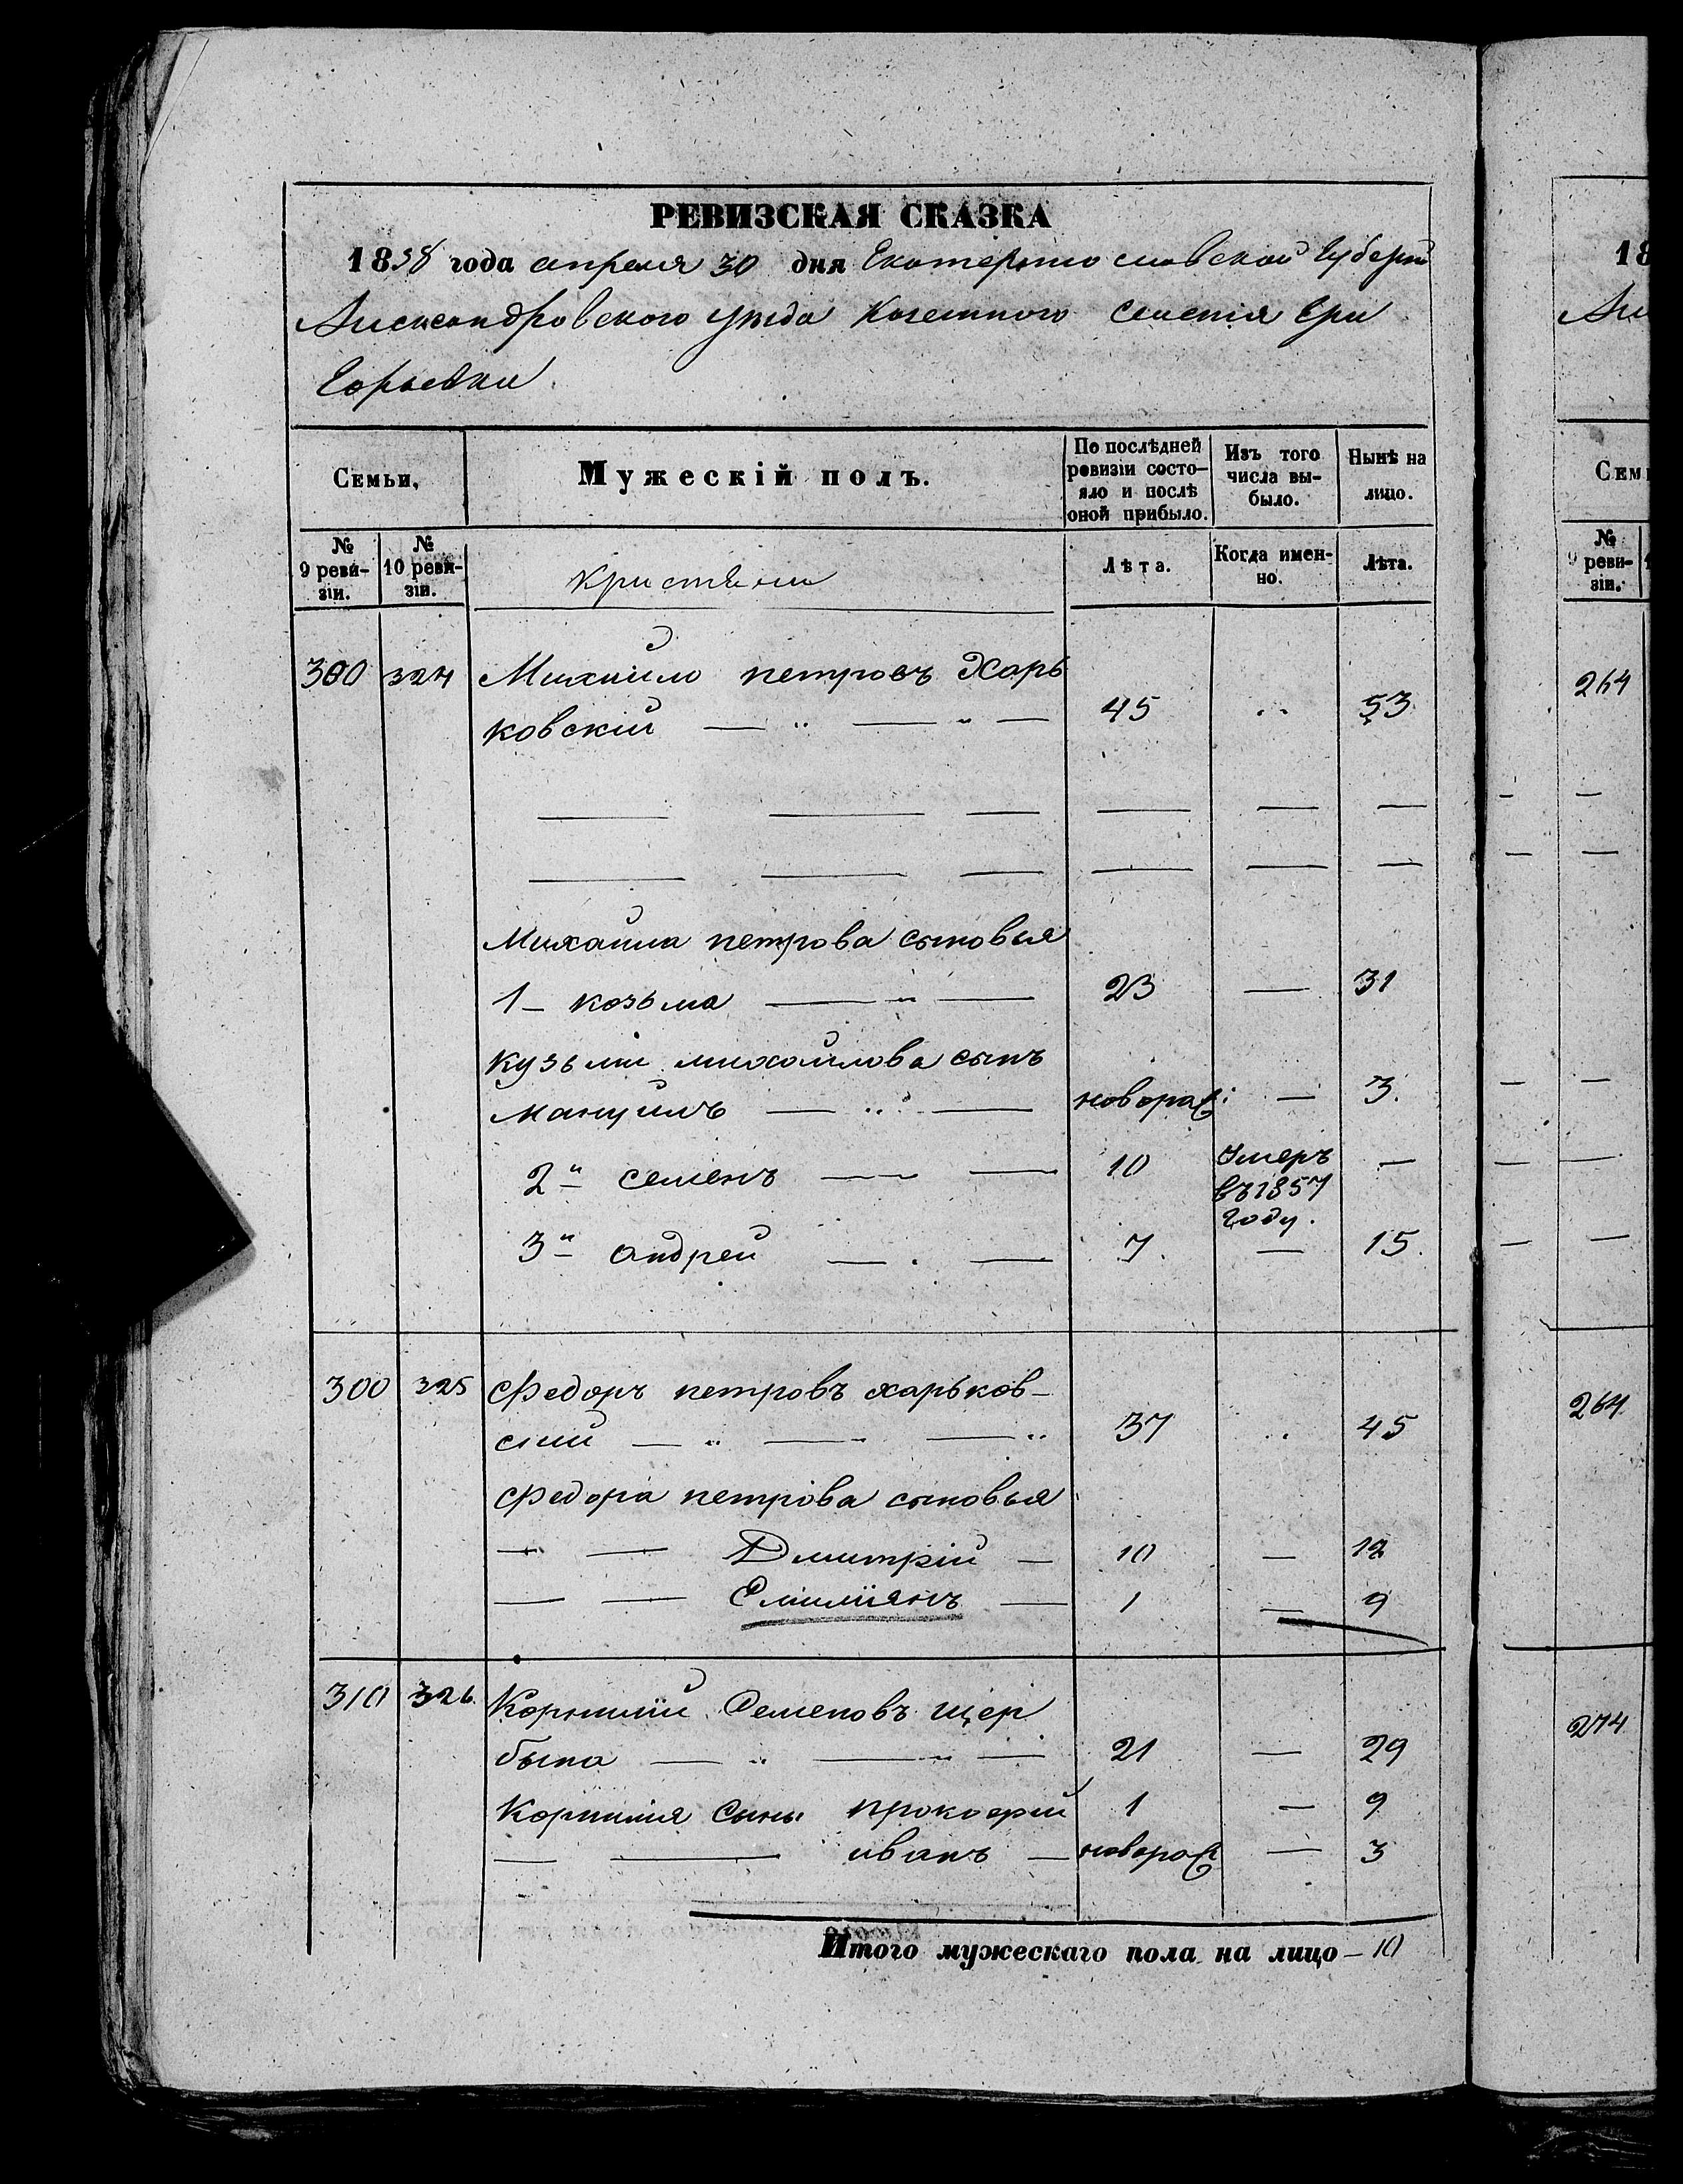 РЕВИЗСКАЯ СКАЗКА
1858 года апреля 30 дня Екатерино славской Губерни
Александровского уезда Казенного Селения Гри
горьевки
Семьи,
Мужескій полъ.
По послѣдней ревизіи состо-яло и послѣ оной прибыло.
Изъ того числа вы-было.
Нынѣ на лицо.
№ 9 реви-зіи.
№ 10 реви-зіи.
Кристяни
Лѣта.
Когда имен-но.
Лѣта.
300 324 Михаило петровъ Харь
ковскій 45 53
Михаила петрова сыновья
1 козьма 23 31
кузьми михаилова сынъ
мануилъ новорож: 3.
2й семенъ 10 Умеръ въ 1857 году.
3й андрей 7. 15.
300 325 Федоръ петровъ харьков-
скии 37 45
Федора петрова сыновья
Дмитрій 10 18
Емилиянъ 1 9
310 326 Корнилій Семеновъ щер
бына 21 29
Корнилія сыны прокофій 1 9
иванъ новорож 3
Итого мужескаго пола на лицо – 10
18
Семь
№ 9 реви-зіи.
264
264
274